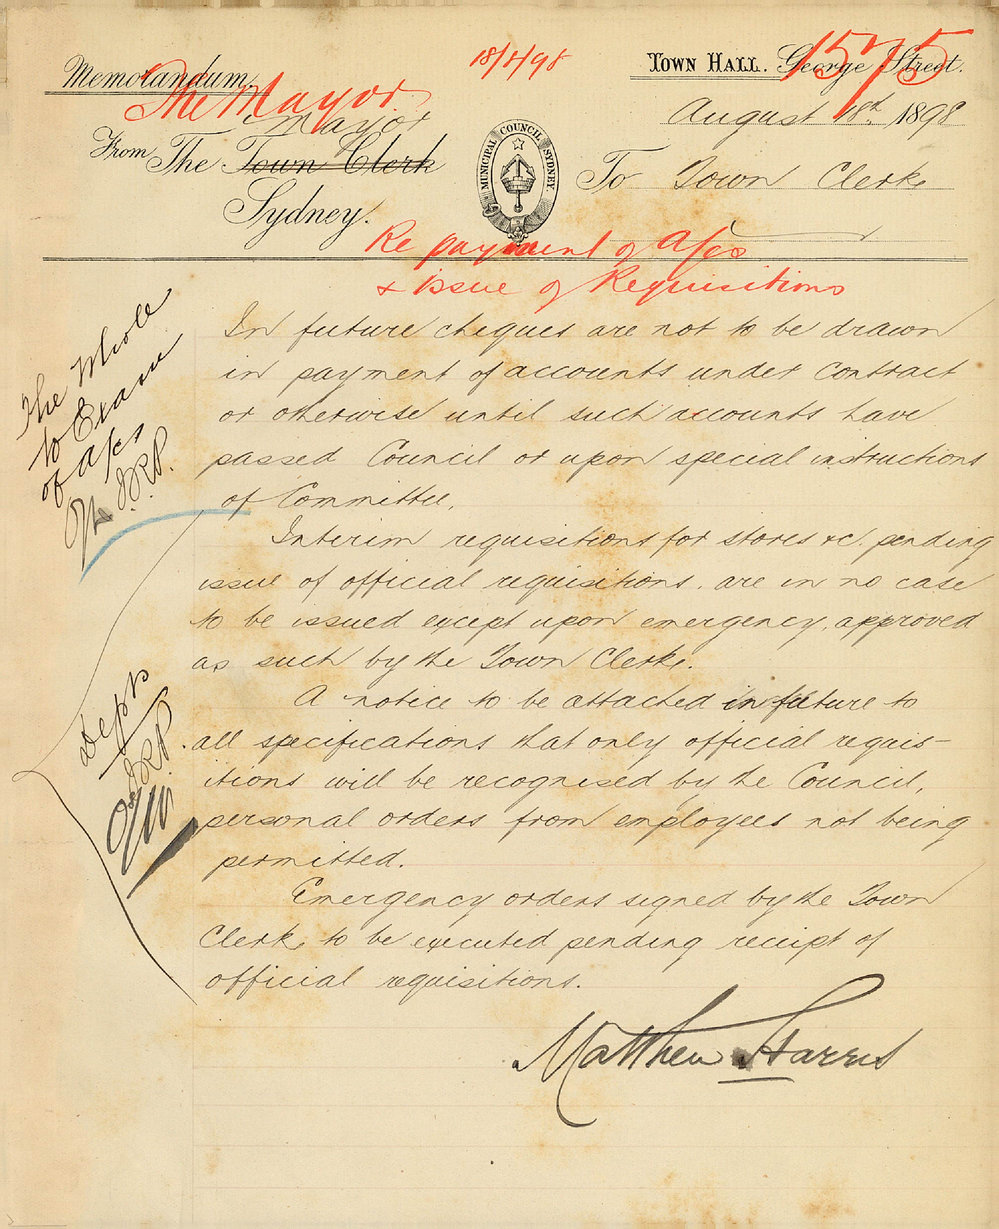 Memorandum
The Mayor
18/8/98
1575
Town Hall. George Street.
August 18th 1898
Mayor
From The Town Clerk
Sydney.
MUNICIPAL COUNCIL SYDNEY.
To Town Clerk
Re payment of a/cs
& Issue of Requisitions
In future cheques are not to be drawn
in payment of accounts under contract
or otherwise until such accounts have
passed Council or upon special instructions
of Committee.
Interim requisitions for stores &c. pending
issue of official requisitions, are in no case
to be issued except upon emergency, approved
as such by the Town Clerk.
A notice to be attached in future to
all specifications that only official requis-
itions will be recognised by the Council,
personal orders from employees not being
permitted.
Emergency orders signed by the Town
Clerk, to be executed pending receipt of
official requisitions.
Matthew Harris
The Whole
to Exam
of a/cs
Depts